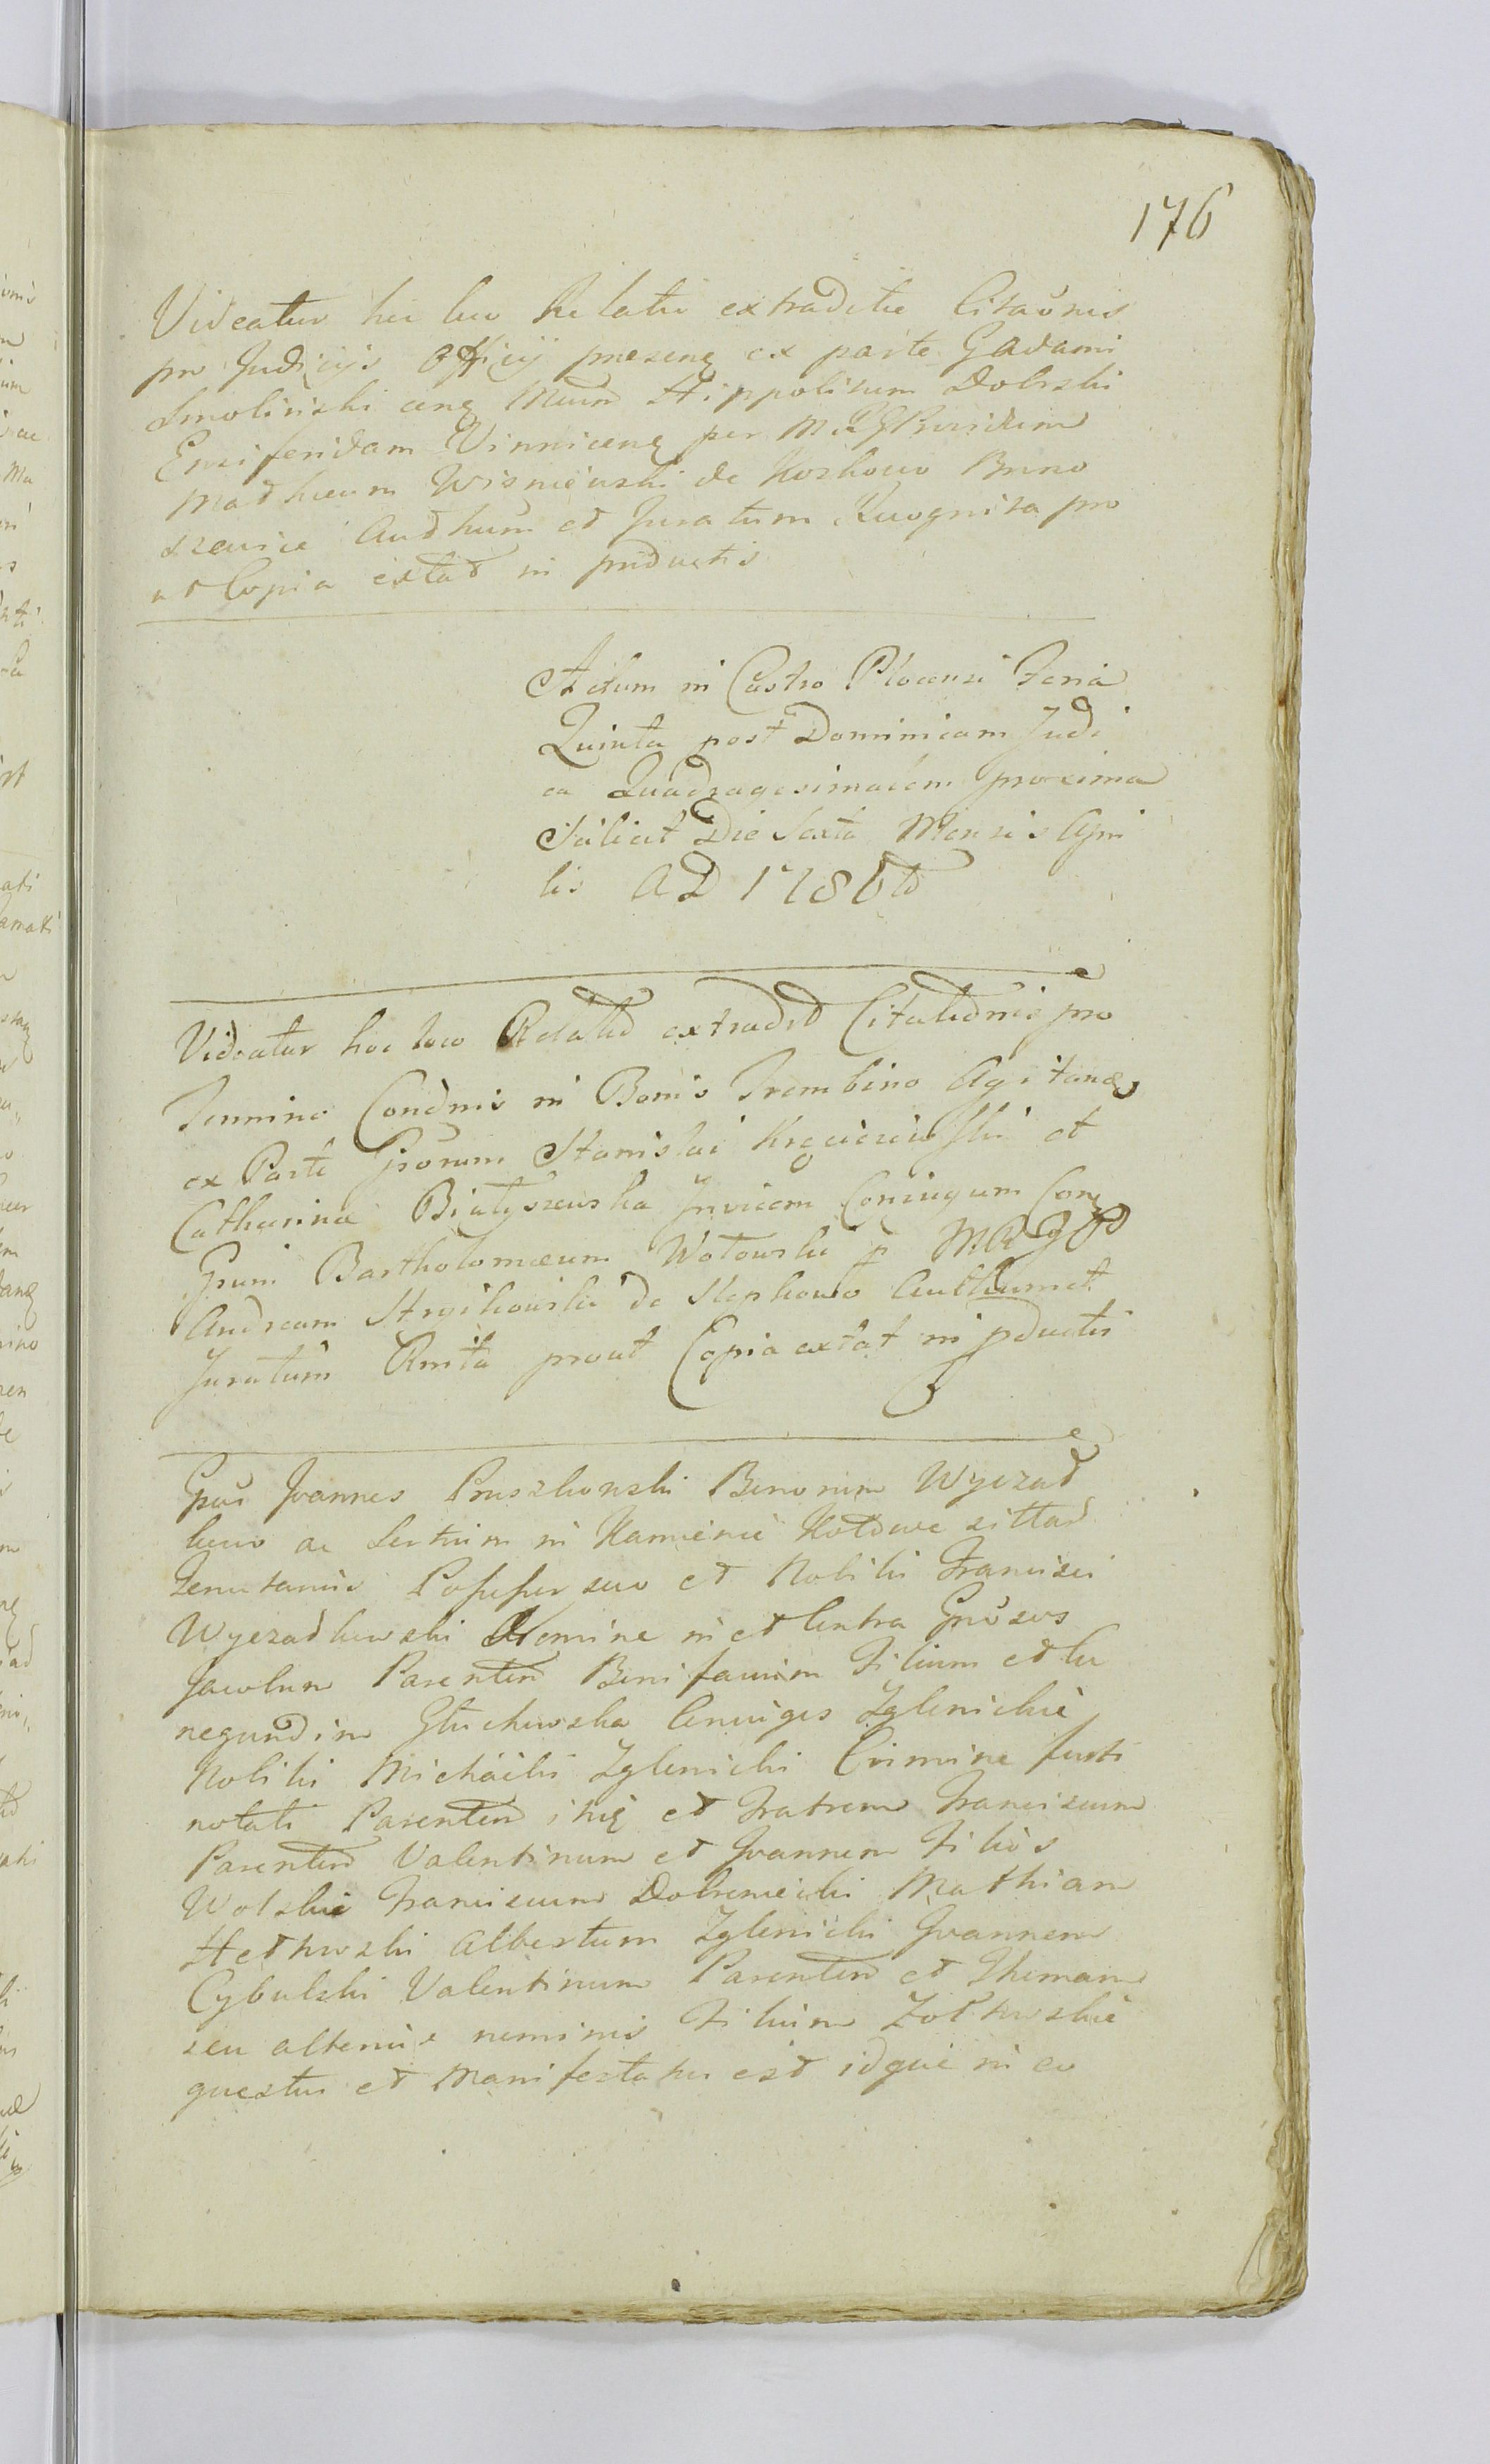 176
Videatur hic loco Relatio extraditae Citaõnis
pro Judicijs Officij praesenz ex parte G Adami
Smolinski cenz Mcum Hippolitum Dobrski
Ensiferidam Vinnicenz per M
Mathaeum Wisniewski de Koskowo Bromo
szewice Authum et Juratum Recognita pro
ut Copia extat in productis
Actum in Castro Plocensi Feria
Quinta post Dominicam Judi
ca Quadragesimalem proxima
Scilicet Die Sexta Mensis Apri
lis AD 1786to
Videatur hoc loco Relatio extradit Citationis pro
Termino Condnis in Bonis Trembino Agitanz
ex Parte Grorum Stanislai et
Catharinae Białyszewska Invicem Coniugum Conz
Grum Bartholomaeum Wołowski p MRGP
Andream Stryikowski de Slepkowo Authum et
Juratum Rnita prout Copia extat in pductis
Gnus Joannes Pruszkowski Bonorum Wyczał
kowo ac Sortium in Kamienie Kotowe sittar
Tenutarius Possessor suo et Nobilis Francisci
Wyczałkowski Nomine in et Contra Gnosos
Jacobum Parentem Bonifacium Filium et Cu
negundim Głuchowska Coniuges Zglenickie
Nobilis Michaelis Zglenicki Crimine furti
notati Parentem et Fratrem Franciscum
Parentem Valentinum et Joannem Filios
Wolskie Franciscum Dobrenicki Mathiam
Hetkowski Albertum Zglenicki Joannem
Cybulski Valentinum Parentem et Thomam
seu alterius nominis Filium Zołkowskie
questus et Manifestatus est idque in eo